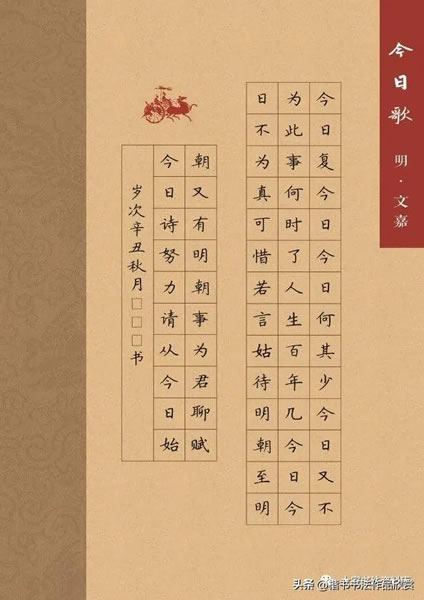 今日歌
明·文嘉
今日复今日今日何其少今日又不
为此事何时了人生百年几今日今
日不为真可惜若言姑待明朝至明
朝又有明朝事为君聊赋
今日诗努力请从今日始
岁次辛丑秋月□□□书
头条@楷书书法作品欣赏